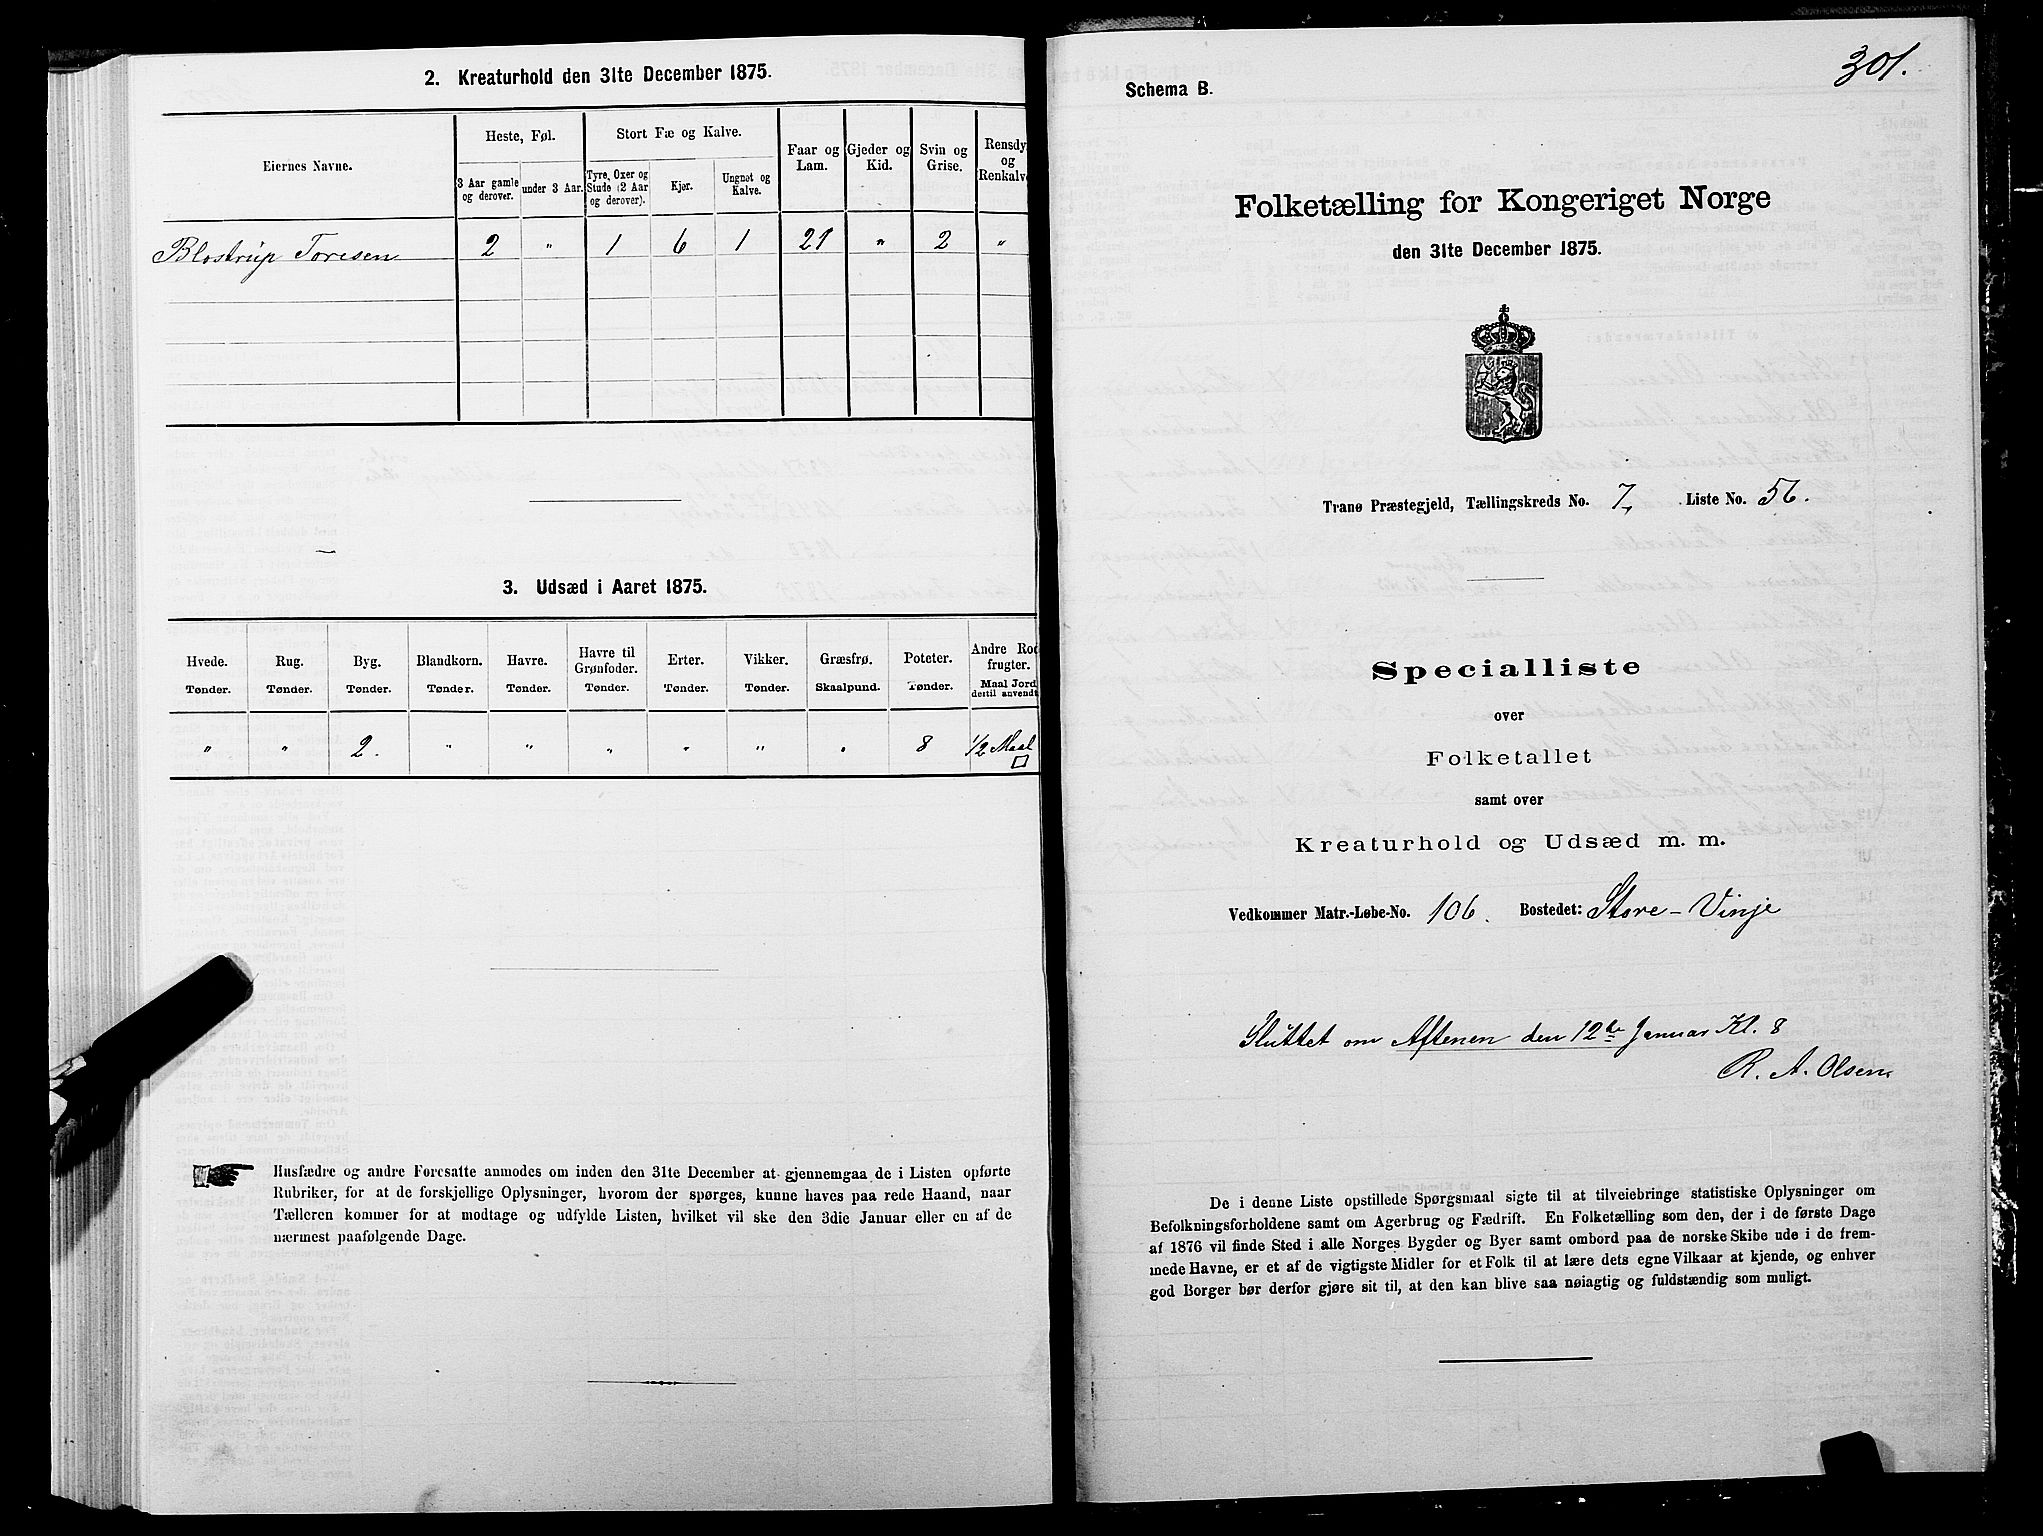 2. Kreaturhold den 31te December 1875.
Eiernes Navne.
Heste, Føl.
Stort Fæ og Kalve.
3 Aar gamle og derover.
under 3 Aar.
Tyre, Oxer og Stude (2 Aar og derover).
Kjør.
Ungnøt og Kalve.
Faar og Lam.
Gjeder og Kid.
Svin og Grise.
Rensdy og Renkalv
Blostrup Toresen 2 " 1 6 1 21 " 2 "
3. Udsæd i Aaret 1875.
Hvede. Rug. Byg. Blandkorn. Havre. Havre til Grønfoder. Erter. Vikker. Græsfrø. Poteter. Andre Rod frugter.
Tønder. Tønder. Tønder. Tønder. Tønder. Tønder. Tønder. Tønder. Skaalpund. Tønder. Maal Jord dertil anvendt
" " 2. " " " " " " 8 1/2 Maal □
Husfædre og andre Foresatte anmodes om inden den 31te December at gjennemgaa de i Listen opførte
Rubriker, for at de forskjellige Oplysninger, hvorom der spørges, kunne haves paa rede Haand, naar
Tælleren kommer for at modtage og udfylde Listen, hvilket vil ske den 3die Januar eller en af de
nærmest paafølgende Dage.
301.
Schema B.
Folketælling for Kongeriget Norge
den 31te December 1875.
Tranø Præstegjeld, Tællingskreds No. 7, Liste No. 56.
Specialliste
over
Folketallet
samt over
Kreaturhold og Udsæd m. m.
Vedkommer Matr.-Løbe-No. 106. Bostedet: Store-Vinje
Sluttet om Aftenen den 12te Januar Kl. 8
R. A. Olsen.
De i denne Liste opstillede Spørgsmaal sigte til at tilveiebringe statistiske Oplysninger om
Befolkningsforholdene samt om Agerbrug og Fædrift. En Folketælling som den, der i de første Dage
af 1876 vil finde Sted i alle Norges Bygder og Byer samt ombord paa de norske Skibe ude i de frem-
mede Havne, er et af de vigtigste Midler for et Folk til at lære dets egne Vilkaar at kjende, og enhver
god Borger bør derfor gjøre sit til, at den kan blive saa nøiagtig og fuldstændig som muligt.